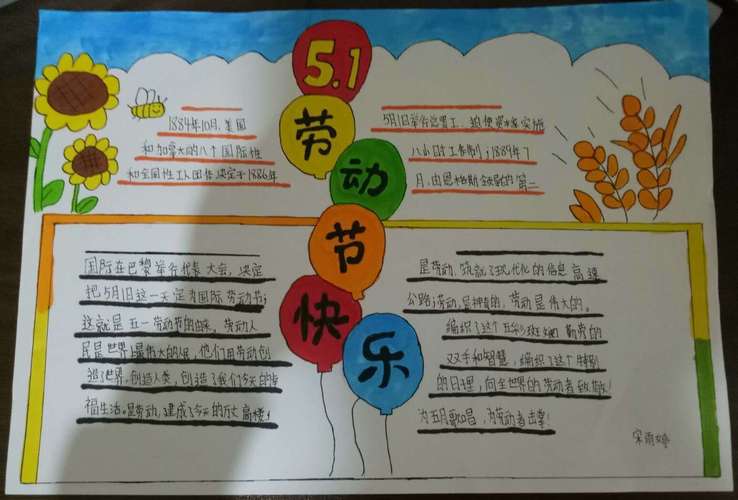 5.1
劳
动
节
快
乐
1884年10月,美国
和加拿大的八个国际性
和全国性工人团体决定于1886年
5月1日举行总罢工,迫使资本家实施
八小时工作制;1889年7
月,由恩格斯领导的第二
国际在巴黎举行代表大会,决定
把5月1日这一天定为国际劳动节;
这就是五一劳动节的由来。劳动人
民是世界上最伟大的人民,他们用劳动创
造了世界,创造人类,创造了我们今天的幸
福生活。是劳动,建成了今天的万丈高楼;
是劳动,筑就了现代化的信息高速
公路;劳动,是神圣的,劳动是伟大的。
编织了这个五彩斑斓 勤劳的
双手和智慧,编织了这个特别
的日理,向全世界的劳动者致敬!
为五月歌唱,为劳动者击掌!
宋雨婷